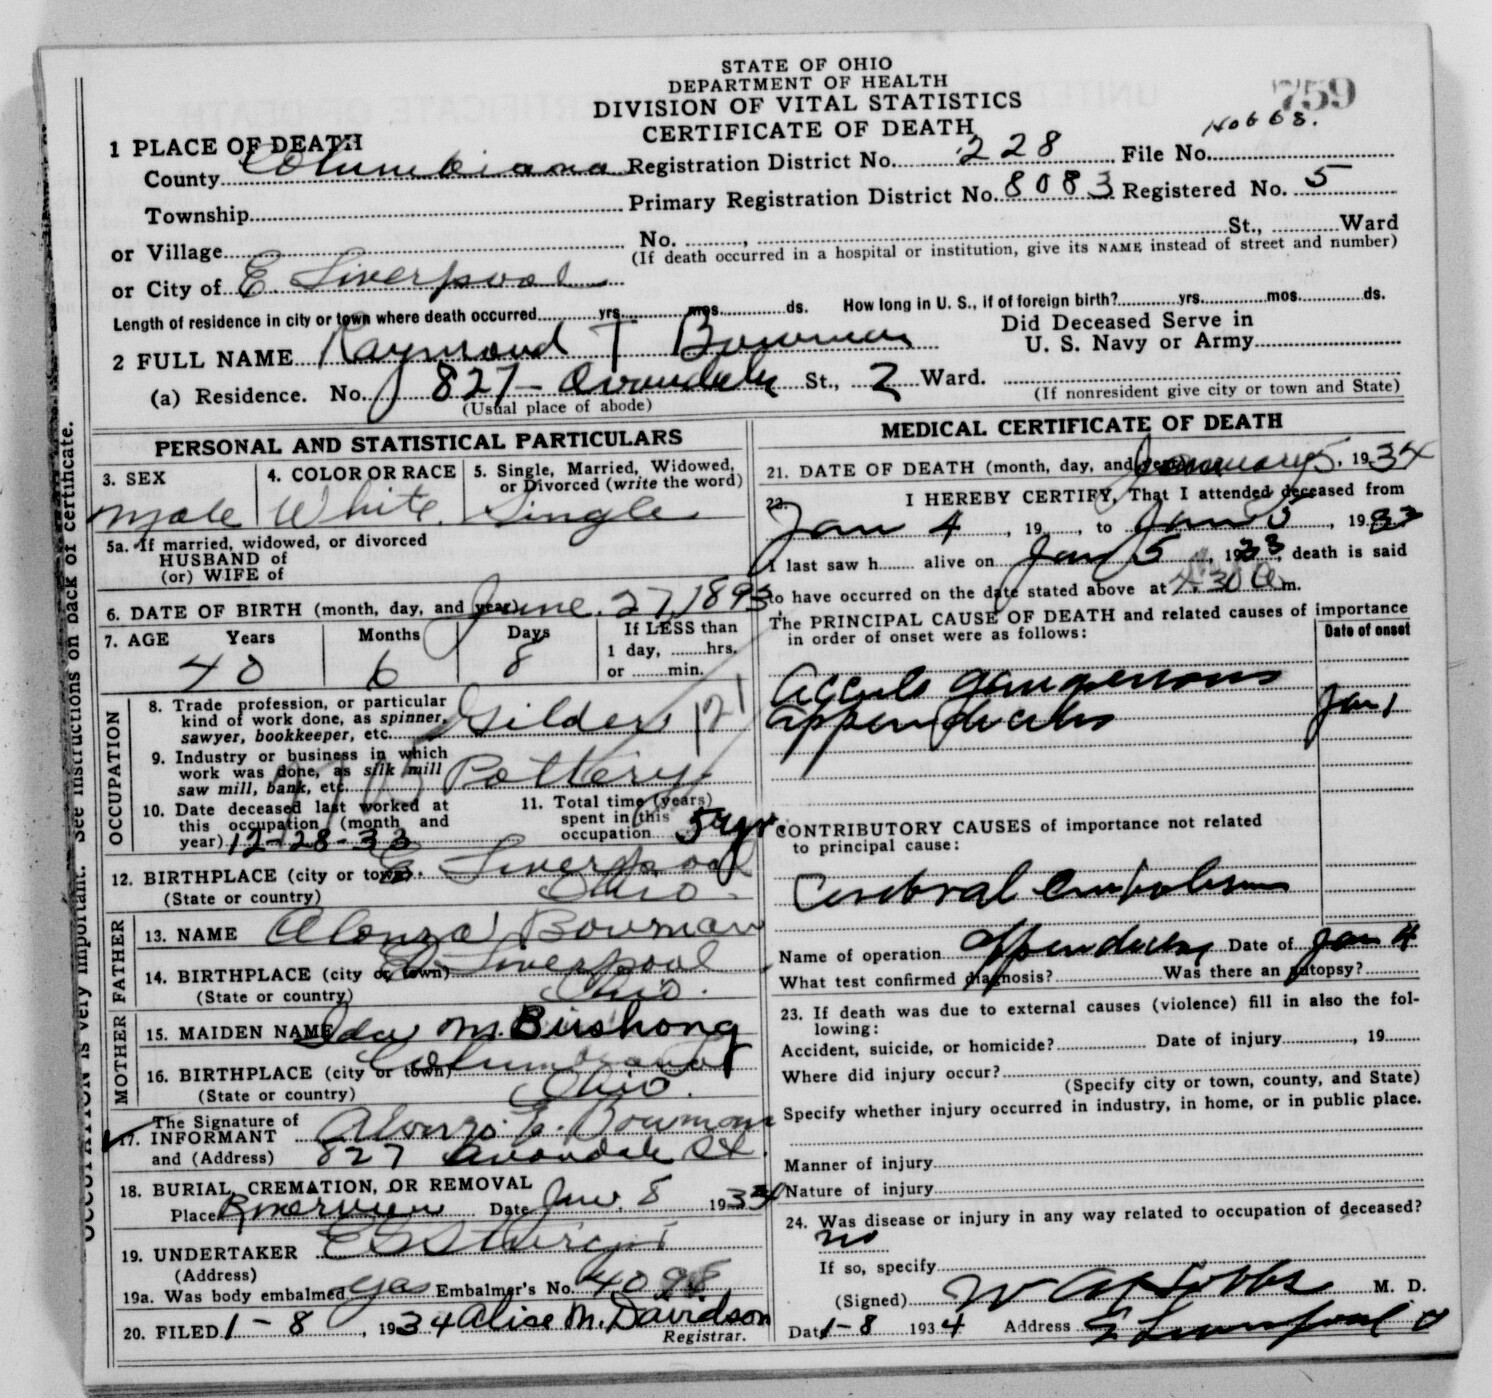 STATE OF OHIO
DEPARTMENT OF HEALTH
DIVISION OF VITAL STATISTICS
CERTIFICATE OF DEATH
759
No 668.
1 PLACE OF DEATH
County Columbiana Registration District No. 228 File No.
Township Primary Registration District No. 8083 Registered No. 5
or Village No. , St., Ward
(If death occurred in a hospital or institution, give its NAME instead of street and number)
or City of E. Liverpool
Length of residence in city or town where death occurred yrs. mos. ds. How long in U. S., if of foreign birth? yrs. mos. ds.
2 FULL NAME Raymond T Bowman Did Deceased Serve in
U. S. Navy or Army
(a) Residence. No. 827 - Avondale St., 2 Ward.
(Usual place of abode) (If nonresident give city or town and State)
PERSONAL AND STATISTICAL PARTICULARS
3. SEX 4. COLOR OR RACE 5. Single, Married, Widowed,
or Divorced (write the word)
Male White Single
5a. If married, widowed, or divorced
HUSBAND of
(or) WIFE of
6. DATE OF BIRTH (month, day, and year) June 27, 1893
7. AGE Years Months Days If LESS than
1 day, hrs.
or min.
40 6 8
OCCUPATION
8. Trade profession, or particular
kind of work done, as spinner,
sawyer, bookkeeper, etc. Gilder
9. Industry or business in which
work was done, as silk mill
saw mill, bank, etc. Pottery
10. Date deceased last worked at
this occupation (month and
year) 12-28-33
11. Total time (years)
spent in this
occupation 5 yr.
12. BIRTHPLACE (city or town) E. Liverpool
(State or country) Ohio.
FATHER
13. NAME Alonza Bowman
14. BIRTHPLACE (city or town) E. Liverpool
(State or country) Ohio.
MOTHER
15. MAIDEN NAME Ida M. Birshong
16. BIRTHPLACE (city or town)
(State or country) Ohio.
17. The Signature of
INFORMANT Alonzo E. Bowman
and (Address) 827 Avondale St.
18. BURIAL, CREMATION, OR REMOVAL
Place Riverview Date Jan. 8 1934
19. UNDERTAKER
(Address)
19a. Was body embalmed yes Embalmer's No. 4098
20. FILED 1-8, 1934 Alise M. Davidson
Registrar.
MEDICAL CERTIFICATE OF DEATH
21. DATE OF DEATH (month, day, and year) January 5, 1934
22. I HEREBY CERTIFY, That I attended deceased from
Jan 4, 19 , to Jan 5, 1933
I last saw h alive on Jan 5, 1933, death is said
to have occurred on the date stated above at 7.30 A m.
The PRINCIPAL CAUSE OF DEATH and related causes of importance
in order of onset were as follows:
Date of onset
Accute gangerous
appendicitis Jan 1
CONTRIBUTORY CAUSES of importance not related
to principal cause:
Cerebral Embolism
Name of operation Date of Jan 4
What test confirmed diagnosis? Was there an autopsy?
23. If death was due to external causes (violence) fill in also the fol-
lowing:
Accident, suicide, or homicide? Date of injury , 19
Where did injury occur?
(Specify city or town, county, and State)
Specify whether injury occurred in industry, in home, or in public place.
Manner of injury
Nature of injury
24. Was disease or injury in any way related to occupation of deceased?
no
If so, specify
(Signed) M. D.
Date 1-8 1934 Address E Liverpool O
OCCUPATION is very important. See instructions on back of certificate.